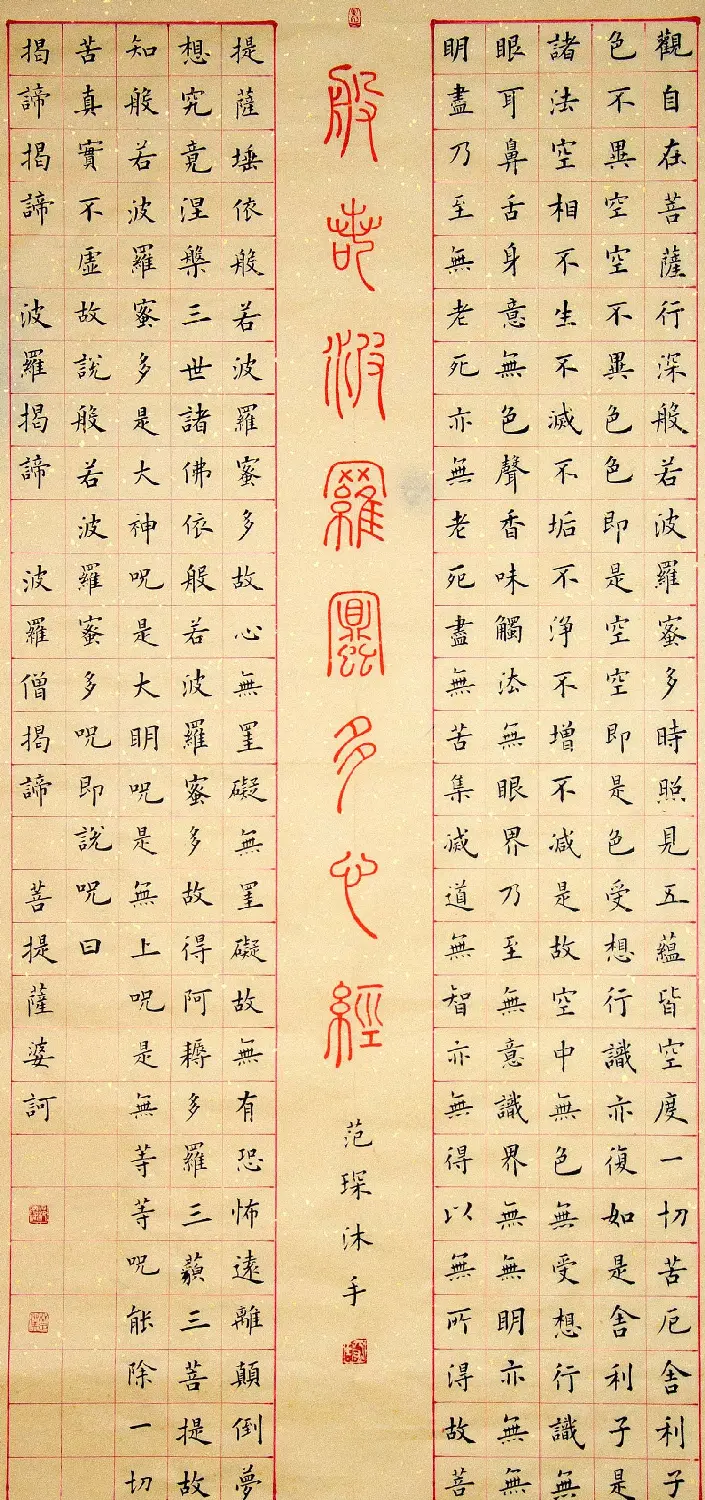 觀自在菩薩行深般若波羅蜜多時照見五蘊皆空度一切苦厄舍利子
色不異空空不異色色即是空空即是色受想行識亦復如是舍利子是
諸法空相不生不滅不垢不淨不增不減是故空中無色無受想行識無
眼耳鼻舌身意無色聲香味觸法無眼界乃至無意識界無無明亦無無
明盡乃至無老死亦無老死盡無苦集滅道無智亦無得以無所得故菩
般若波羅蜜多心經
范琛沐手
提薩埵依般若波羅蜜多故心無罣礙無罣礙故無有恐怖遠離顛倒夢
想究竟涅槃三世諸佛依般若波羅蜜多故得阿耨多羅三藐三菩提故
知般若波羅蜜多是大神呪是大明呪是無上呪是無等等呪能除一切
苦真實不虛故說般若波羅蜜多呪即說呪曰
揭諦揭諦 波羅揭諦 波羅僧揭諦 菩提薩婆訶